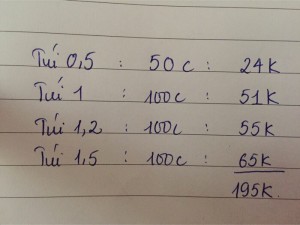 Túi 0,5 : 50c : 24K
Túi 1 : 100c : 51K
Túi 1,2 : 100c : 55K
Túi 1,5 : 100c : 65K
195K